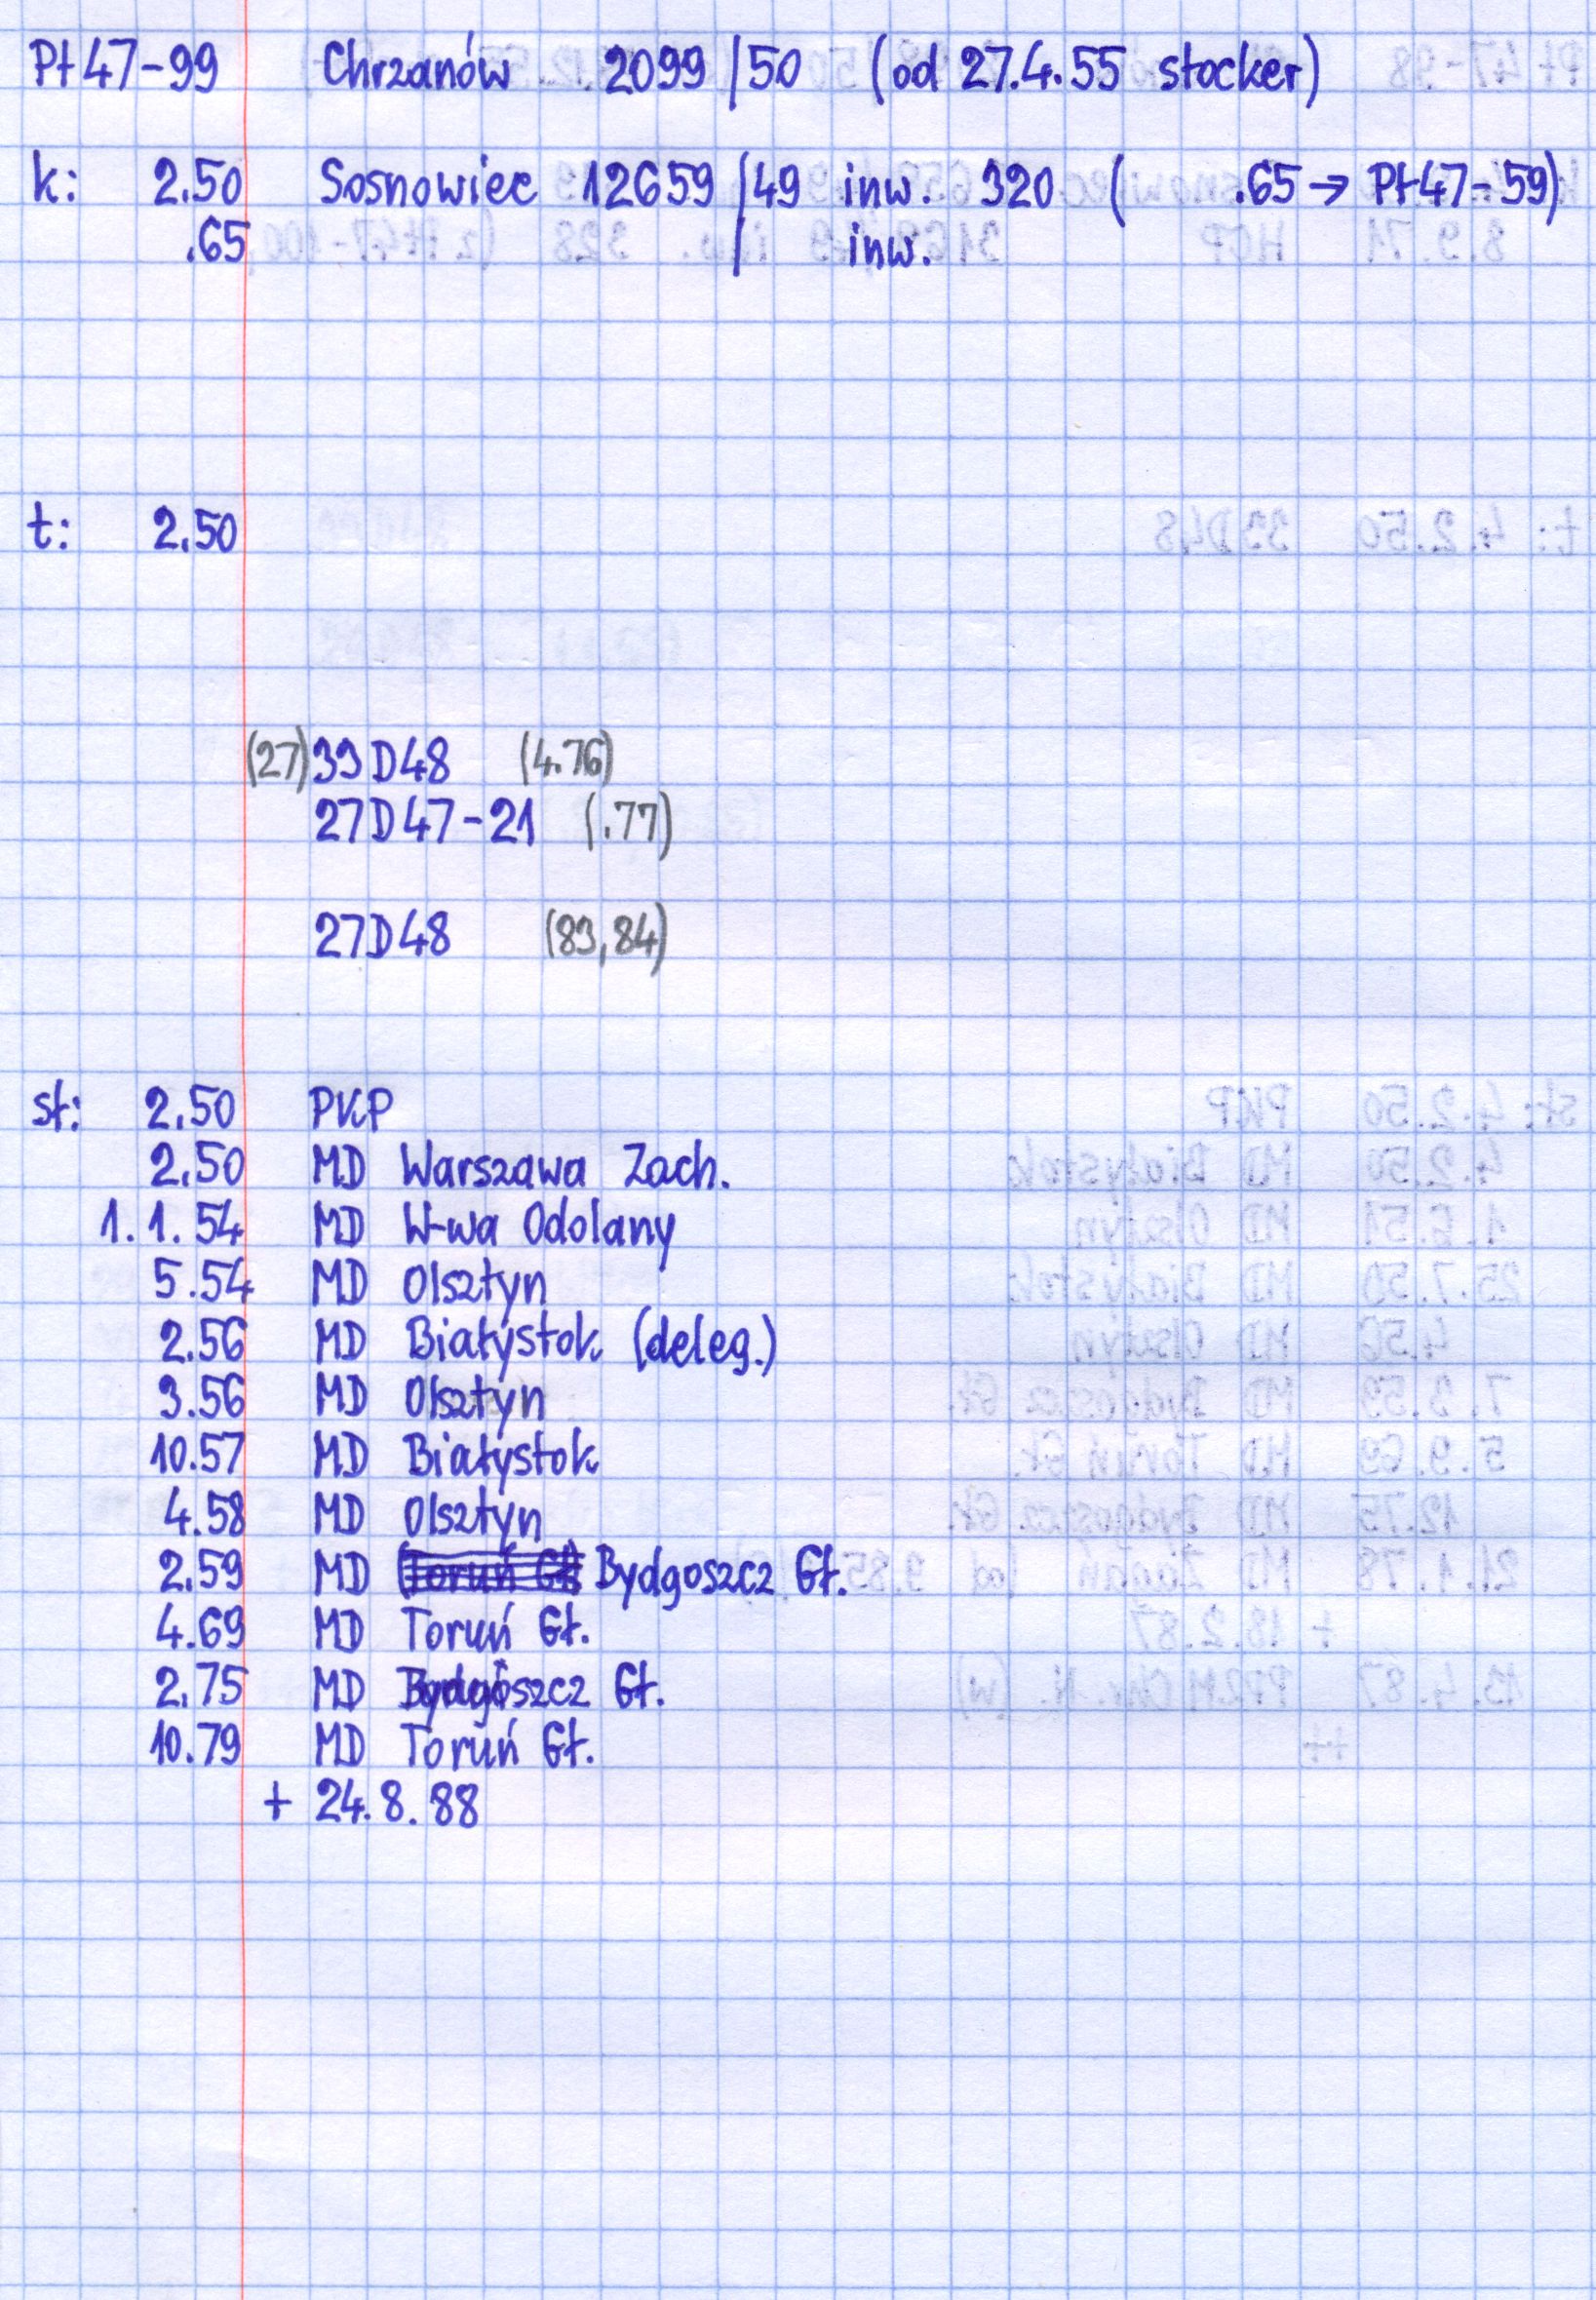 Pt47-99 Chrzanów 2099/50 (od 27.4.55 stocker)
k: 2.50 Sosnowiec 12659/49 inw. 320 ( .65 → Pt47-59)
.65 / inw.
t: 2.50
(27) 39D48 (4.76)
27D47-21 (.77)
27D48 (83,84)
sł: 2.50 PKP
2.50 MD Warszawa Zach.
1.1.54 MD W-wa Odolany
5.54 MD Olsztyn
2.56 MD Białystok (deleg.)
3.56 MD Olsztyn
10.57 MD Białystok
4.58 MD Olsztyn
2.59 MD Bydgoszcz Gł.
4.69 MD Toruń Gł.
2.75 MD Bydgoszcz Gł.
10.79 MD Toruń Gł.
+ 24.8.88